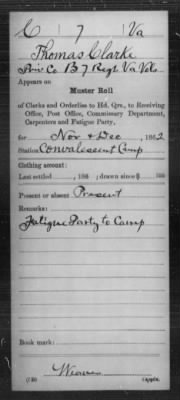 C 7 Va
Thomas Clark
Priv Co B 7 Regt Va Vols
Appears on
Muster Roll
of Clerks and Orderlies to Hd. Qrs., to Receiving
Office, Post Office, Commissary Department,
Carpenters and Fatigue Party,
for Nov & Dec, 1862
Station Convalescent Camp
Clothing account:
Last settled , 186 ; drawn since $ 100
Present or absent Present
Remarks:
Fatigue Party to Camp
Book mark:
Weaver
Copyist.